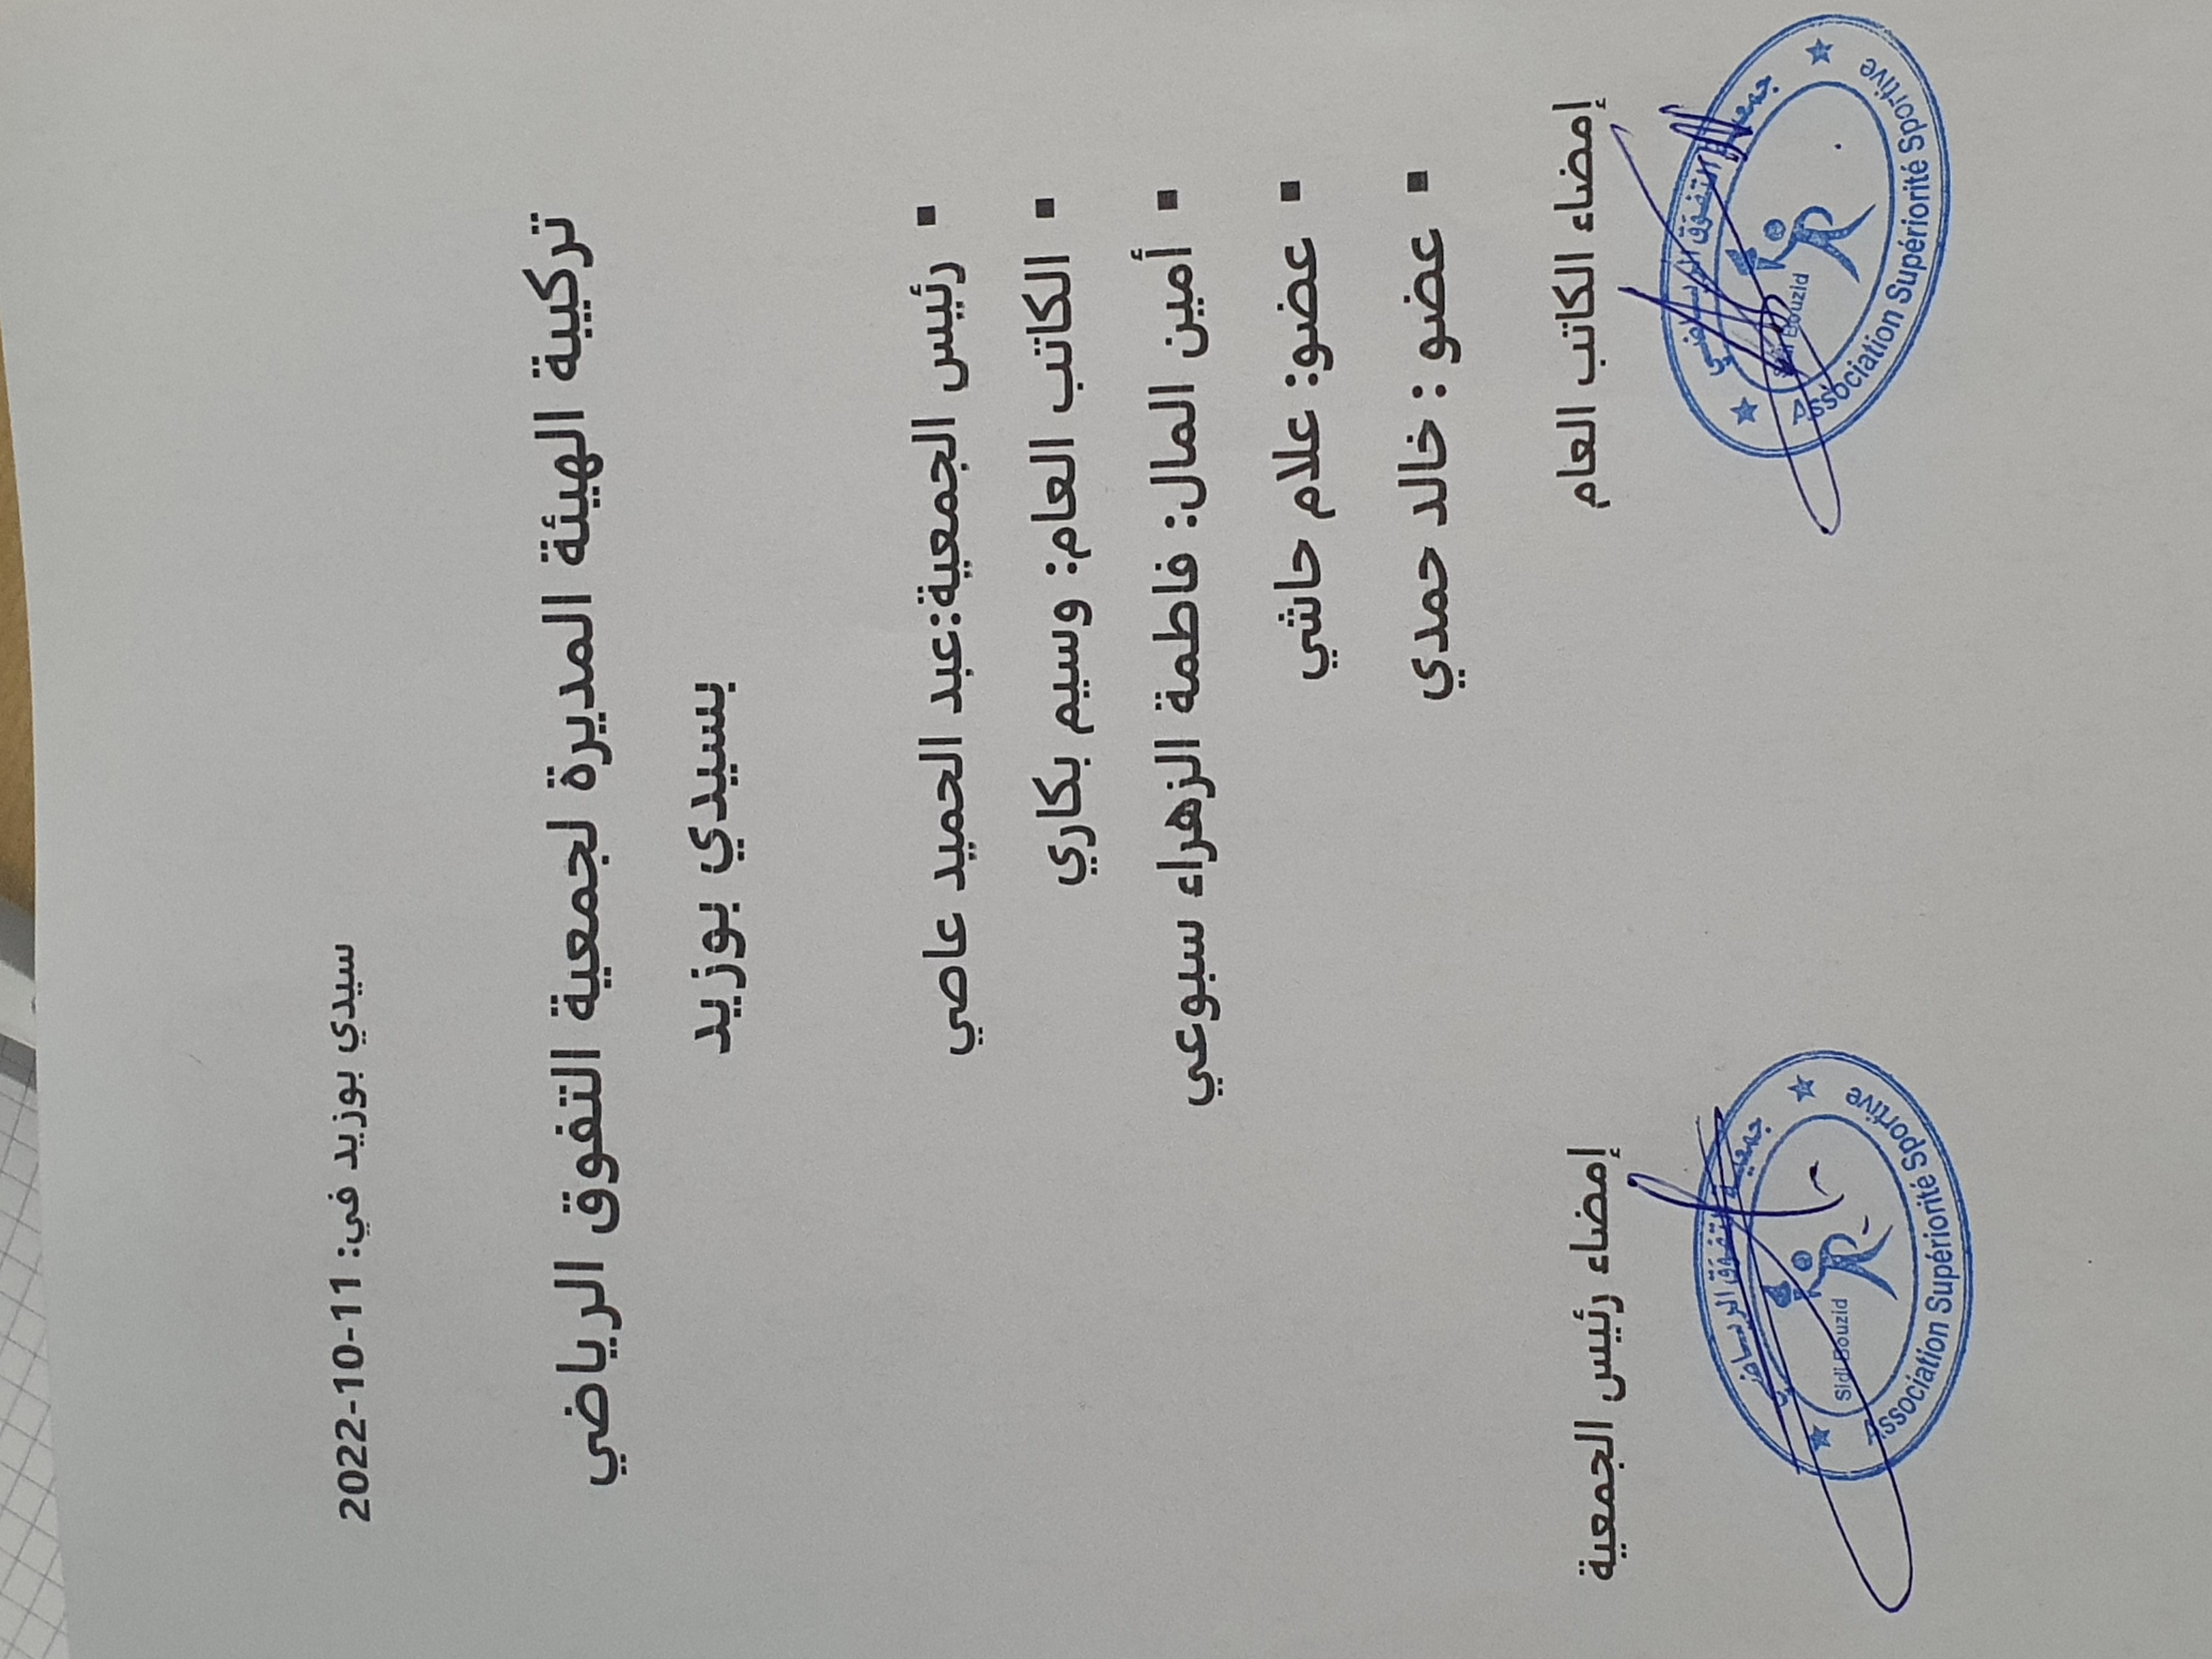 سيدي بوزيد في: 11-10-2022
تركيبة الهيئة المديرة لجمعية التفوق الرياضي
بسيدي بوزيد
▪ رئيس الجمعية:عبد الحميد عاصي
▪ الكاتب العام: وسيم بكاري
▪ أمين المال: فاطمة الزهراء سبوعي
▪ عضو: علام حاشي
▪ عضو : خالد حمدي
إمضاء الكاتب العام
إمضاء رئيس الجمعية
جمعية التفوق الرياضي
Sidi Bouzid
Association Supériorité Sportive
جمعية التفوق الرياضي
Sidi Bouzid
Association Supériorité Sportive